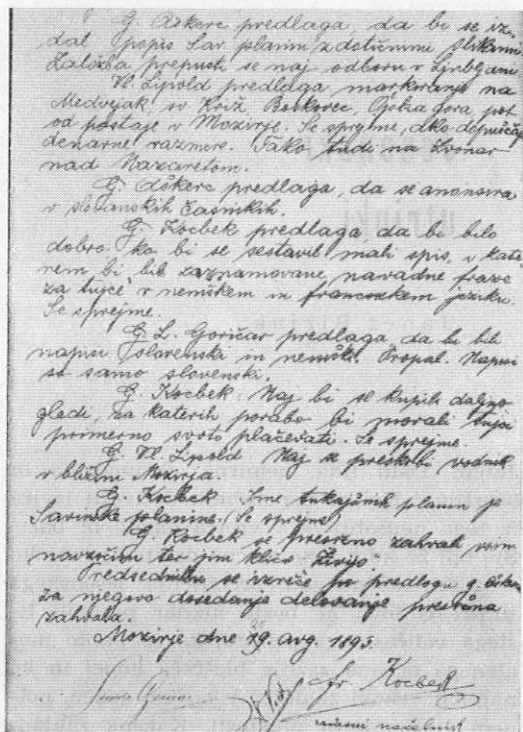 G. Aškerc predlaga, da bi se iz-
dal popis Sav. planin z dotičnimi slikami
Založba prepusti se naj odboru v Ljubljani
Vl. Lipold predlaga markiranje na
Medvejak, sv. Križ, Boskovec, Gora, pot
od postaje v Mozirje. Se sprejme, ako dopuščajo
denarne razmere. Tako tudi na
nad Nazaretom.
G. Aškerc predlaga, da se anonsira
v slovanskih časnikih.
G. Kocbek predlaga, da bi bilo
dobro ko bi se sestavil mali spis, v kate
rem bi bile zaznamovane navadne fraze
za tujce v nemškem in francoskem jeziku.
Se sprejme.
G. L. Goričar predlaga, da bi bili
napisi slovenski in nemški. Propal. Napisi
so samo slovenski.
G. Kocbek: Naj bi se kupili daljno
gledi, za katerih porabo bi morali tujci
primerno svoto plačevati. Se sprejme.
G. Vl. Lipold Naj se preskrbi vodnik
v bližini Mozirja.
G. Kocbek Ime tukajšnih planin je
Savinske planine. (Se sprejme)
G. Kocbek se presrčno zahvali vsim
navzočim ter jim kliče "Živijo".
Predsedniku se izreče po predlogu g.
za njegovo dosedanje delovanje presrčna
zahvala.
Mozirje dne 29. avg. 1893.
Fr. Kocbek
načelnik